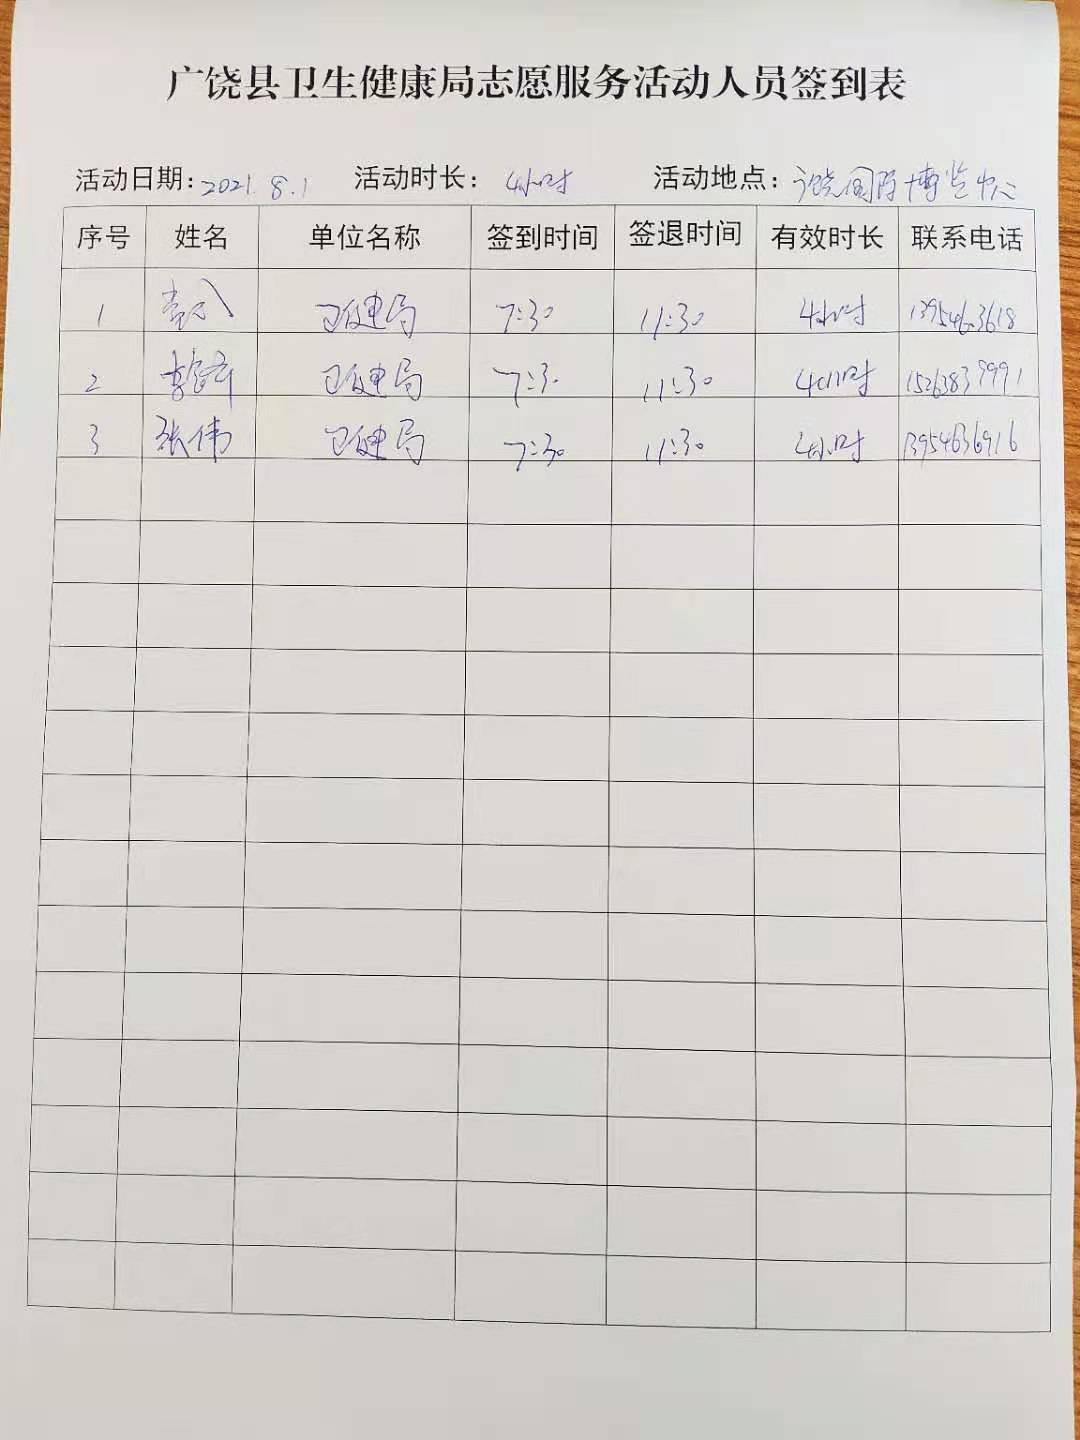 广饶县卫生健康局志愿服务活动人员签到表
活动日期：2021.8.1 活动时长：4小时 活动地点：广饶国际博览中心
序号 姓名 单位名称 签到时间 签退时间 有效时长 联系电话
1 卫健局 7:30 11:30 4小时 13954623618
2 李 卫健局 7:30 11:30 4小时 15263839991
3 张伟 卫健局 7:30 11:30 4小时 13954636916